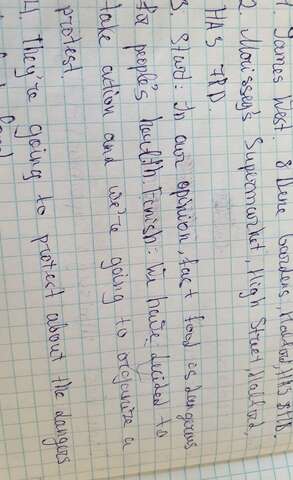 1. James West. 8 Dene Gardens, Halford, HA3
2 Morissey's Supermarket, High Street, Halford,
HA3 7RD.
3. Start: In our opinion, fast food is dangerous
for people's health. Finish: we have decided to
take action and we're going to organize a
protest.
4. They're going to protest about the dangers